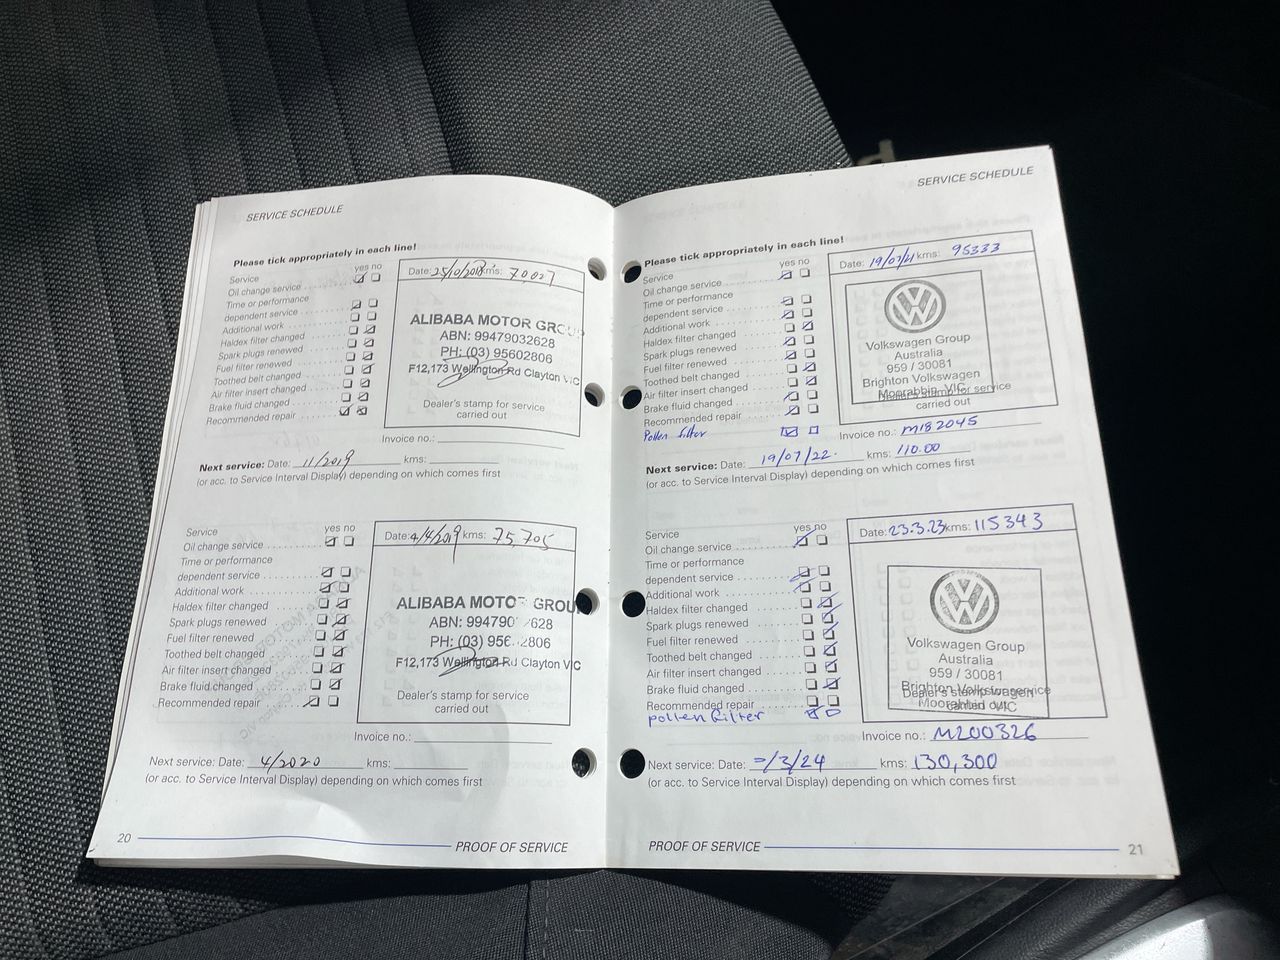 SERVICE SCHEDULE
Please tick appropriately in each line!
Service yes no
Oil change service
Time or performance
dependent service
Additional work
Haldex filter changed
Spark plugs renewed
Fuel filter renewed
Toothed belt changed
Air filter insert changed
Brake fluid changed
Recommended repair
Date: 25/10/2018 kms: 70,027
ALIBABA MOTOR GROUP
ABN: 99479032628
PH: (03) 95602806
F12,173 Wellington Rd Clayton VIC
Dealer's stamp for service
carried out
Invoice no.:
Next service: Date: 11/2019 kms:
(or acc. to Service Interval Display) depending on which comes first
Service yes no
Oil change service
Time or performance
dependent service
Additional work
Haldex filter changed
Spark plugs renewed
Fuel filter renewed
Toothed belt changed
Air filter insert changed
Brake fluid changed
Recommended repair
Date: 4/4/2019 kms: 75,705
ALIBABA MOTOR GROU
ABN: 994790 2628
PH: (03) 956 2806
F12,173 Wellington Rd Clayton VIC
Dealer's stamp for service
carried out
Invoice no.:
Next service: Date: 4/2020 kms:
(or acc. to Service Interval Display) depending on which comes first
20 PROOF OF SERVICE
SERVICE SCHEDULE
Please tick appropriately in each line!
Service yes no
Oil change service
Time or performance
dependent service
Additional work
Haldex filter changed
Spark plugs renewed
Fuel filter renewed
Toothed belt changed
Air filter insert changed
Brake fluid changed
Recommended repair
Pollen filter
Date: 19/07/21 kms: 95333
Volkswagen Group
Australia
959 / 30081
Brighton Volkswagen
Moorabbin, VIC
Dealer's stamp for service
carried out
Invoice no.: M182045
Next service: Date: 19/07/22. kms: 110.00
(or acc. to Service Interval Display) depending on which comes first
Service yes no
Oil change service
Time or performance
dependent service
Additional work
Haldex filter changed
Spark plugs renewed
Fuel filter renewed
Toothed belt changed
Air filter insert changed
Brake fluid changed
Recommended repair
pollen filter
Date: 23.3.23 kms: 115343
Volkswagen Group
Australia
959 / 30081
Brighton Volkswagen
Dealer's stamp for service
Moorabbin VIC
carried out
Invoice no.: M200326
Next service: Date: /3/24 kms: 130,300
(or acc. to Service Interval Display) depending on which comes first
PROOF OF SERVICE 21